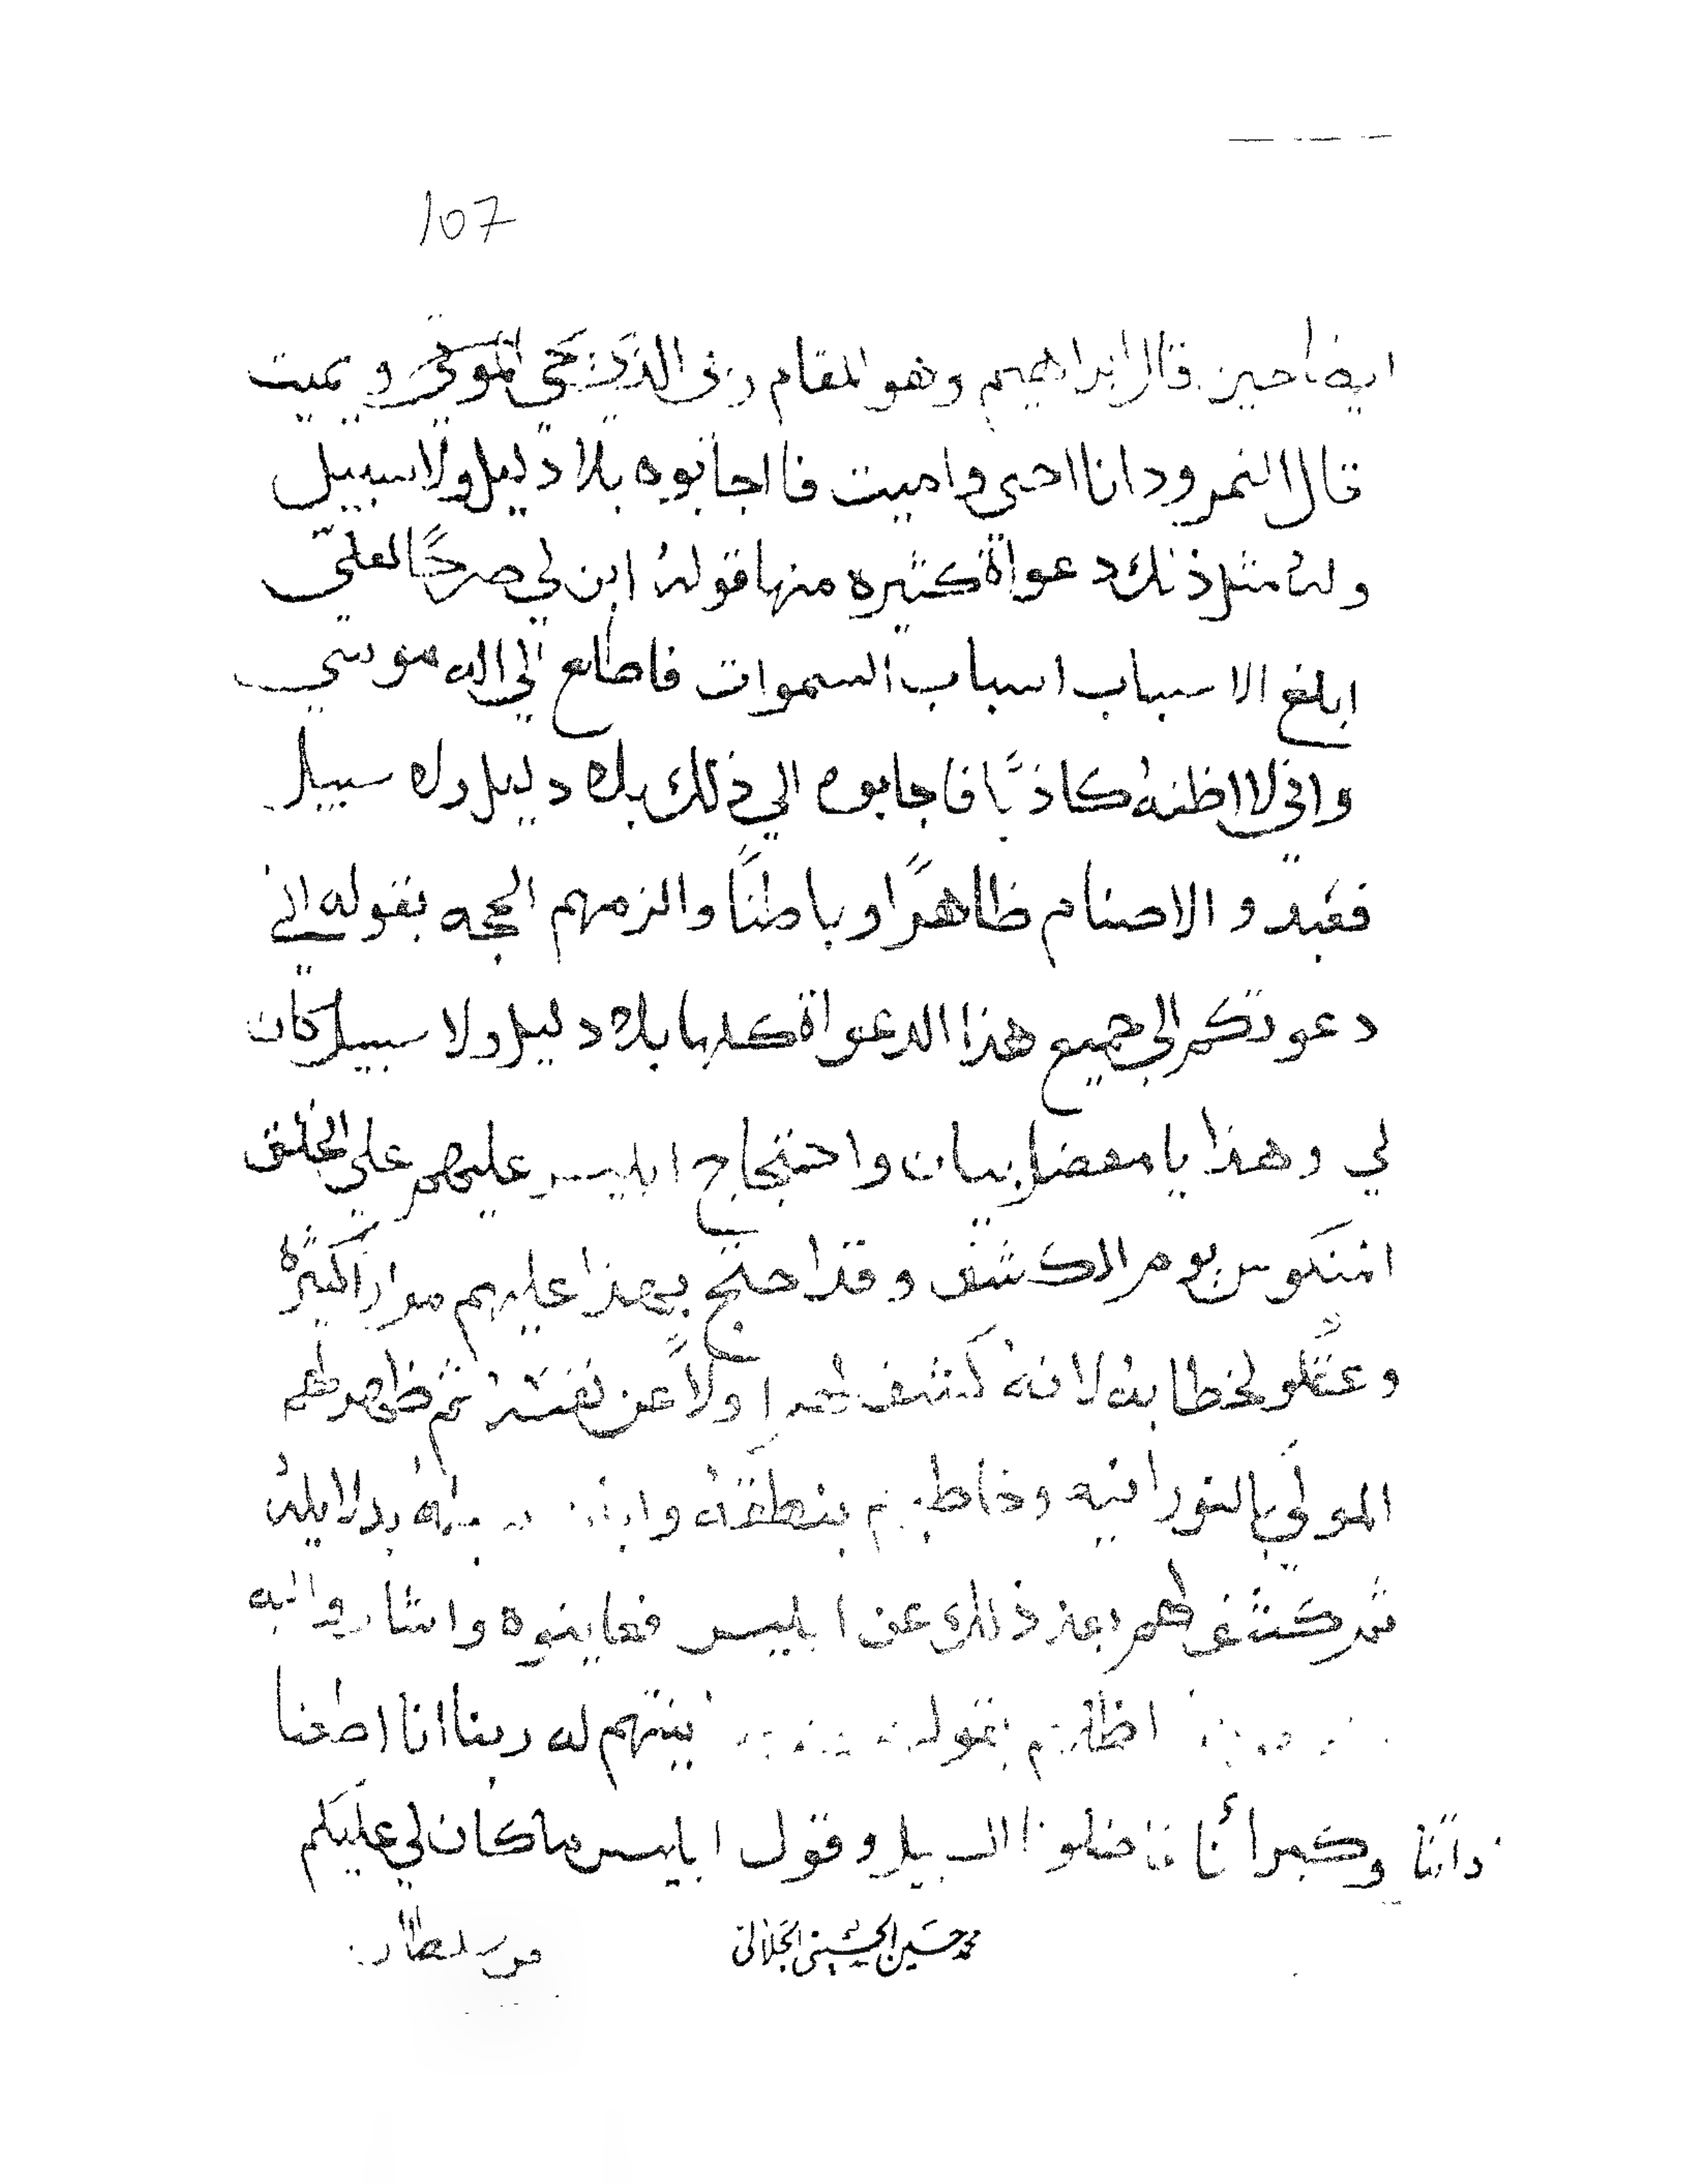 107
ايضا حين قال ابراهيم وهو المقام ربي الذي يحي الموتي ويميت
قال النمرود انا احيي واميت فا اجابوه بلا دليل ولا سبيل
وله مثل ذلك دعواة كثيره منها قوله ابن لي صرحًا لعلّي
ابلغ الاسباب اسباب السموات فاطلع الي اله موسي
واني لا اظنه كاذبًا فاجابوه الي ذلك بلا دليل ولا سبيل
فعبدو الاصنام ظاهرًا وباطنًا والزمهم الحجه بقوله اني
دعوتكم الي جميع هذا الدعواة كلها بلا دليل ولا سبيل كان
لي وهذا يا مفضل بيان واحتجاج ابليس عليهم علي الخلق
المنكوس يوم الكشف وقد احتج بهذا عليهم مرارًا كثيرة
وعقلو لخطابه لانه كشف لهم اولًا عن نفسه ثم ظهر لهم
المولي بالنورانيه وخاطبهم بنطقه بدلايله
ثم كشف لهم بعد ذلك عن ابليس فعاينوه واشارو اليه
اظلهم بقوله له ربنا انا اطعنا
داتنا وكبرأنا فاضلونا السبيل وقول ابليس ما كان لي عليكم
من سلطان
محمد حسين الحسيني الجلالي